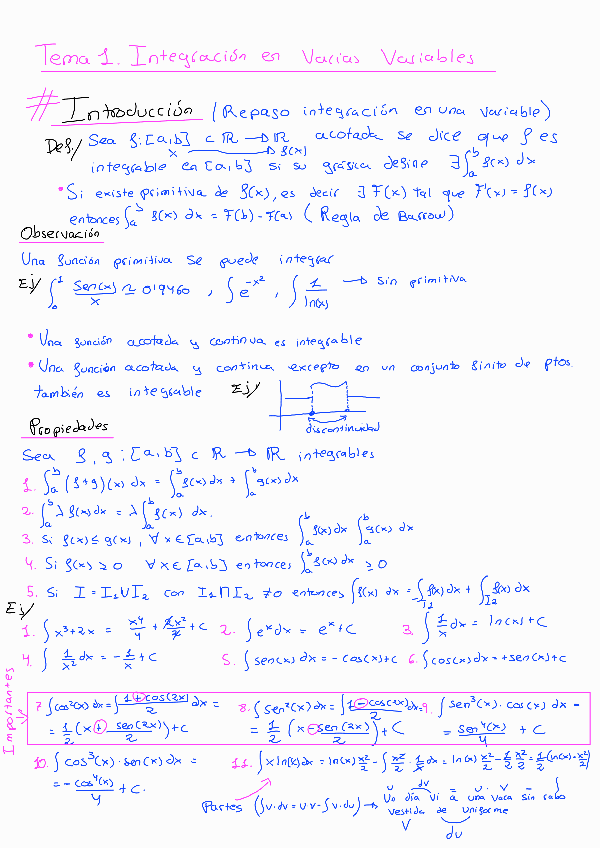 Tema 1. Integración en Varias Variables
# Introducción (Repaso integración en una variable)
Def./ Sea f: [a,b] ⊂ ℝ → ℝ acotada se dice que f es
x → f(x)
integrable en [a,b] si su gráfica define ∃ ∫_a^b f(x) dx
• Si existe primitiva de f(x), es decir ∃ F(x) tal que F'(x) = f(x)
entonces ∫_a^b f(x) dx = F(b) - F(a) (Regla de Barrow)
Observación
Una función primitiva se puede integrar
Ej/ ∫_0^1 sen(x)/x ≃ 0'9460 , ∫ e^{-x^2} , ∫ 1/ln(x) → sin primitiva
• Una función acotada y continua es integrable
• Una función acotada y continua excepto en un conjunto finito de ptos
también es integrable Ej/
discontinuidad
Propiedades
Sea f, g : [a,b] ⊂ ℝ → ℝ integrables
1. ∫_a^b (f+g)(x) dx = ∫_a^b f(x) dx + ∫_a^b g(x) dx
2. ∫_a^b λ f(x) dx = λ ∫_a^b f(x) dx.
3. Si f(x) ≤ g(x), ∀ x ∈ [a,b] entonces ∫_a^b f(x) dx ∫_a^b g(x) dx
4. Si f(x) ≥ 0 ∀ x ∈ [a,b] entonces ∫_a^b f(x) dx ≥ 0
5. Si I = I_1 ∪ I_2 con I_1 ∩ I_2 ≠ 0 entonces ∫ f(x) dx = ∫_{I_1} f(x) dx + ∫_{I_2} f(x) dx
Ej/
1. ∫ x^3 + 2x = x^4/4 + 2x^2/2 + C 2. ∫ e^x dx = e^x + C 3. ∫ 1/x dx = ln(x) + C
4. ∫ 1/x^2 dx = -1/x + C 5. ∫ sen(x) dx = -cos(x) + C 6. ∫ cos(x) dx = +sen(x) + C
Importantes
7. ∫ cos^2(x) dx = ∫ (1 + cos(2x))/2 dx = 8. ∫ sen^2(x) dx = ∫ (1 - cos(2x))/2 dx = 9. ∫ sen^3(x) · cos(x) dx =
= 1/2 (x + sen(2x)/2) + C = 1/2 (x - sen(2x)/2) + C = sen^4(x)/4 + C
10. ∫ cos^3(x) · sen(x) dx = 11. ∫ x ln(x) dx = ln(x) x^2/2 - ∫ x^2/2 · 1/x dx = ln(x) x^2/2 - 1/2 x^2/2 = 1/2 (ln(x) - x^2/2)
= -cos^4(x)/4 + C.
Partes (∫ u · dv = u v - ∫ v · du) → Un día vi a una vaca sin rabo
u dv u · v - ∫
vestida de uniforme
v du